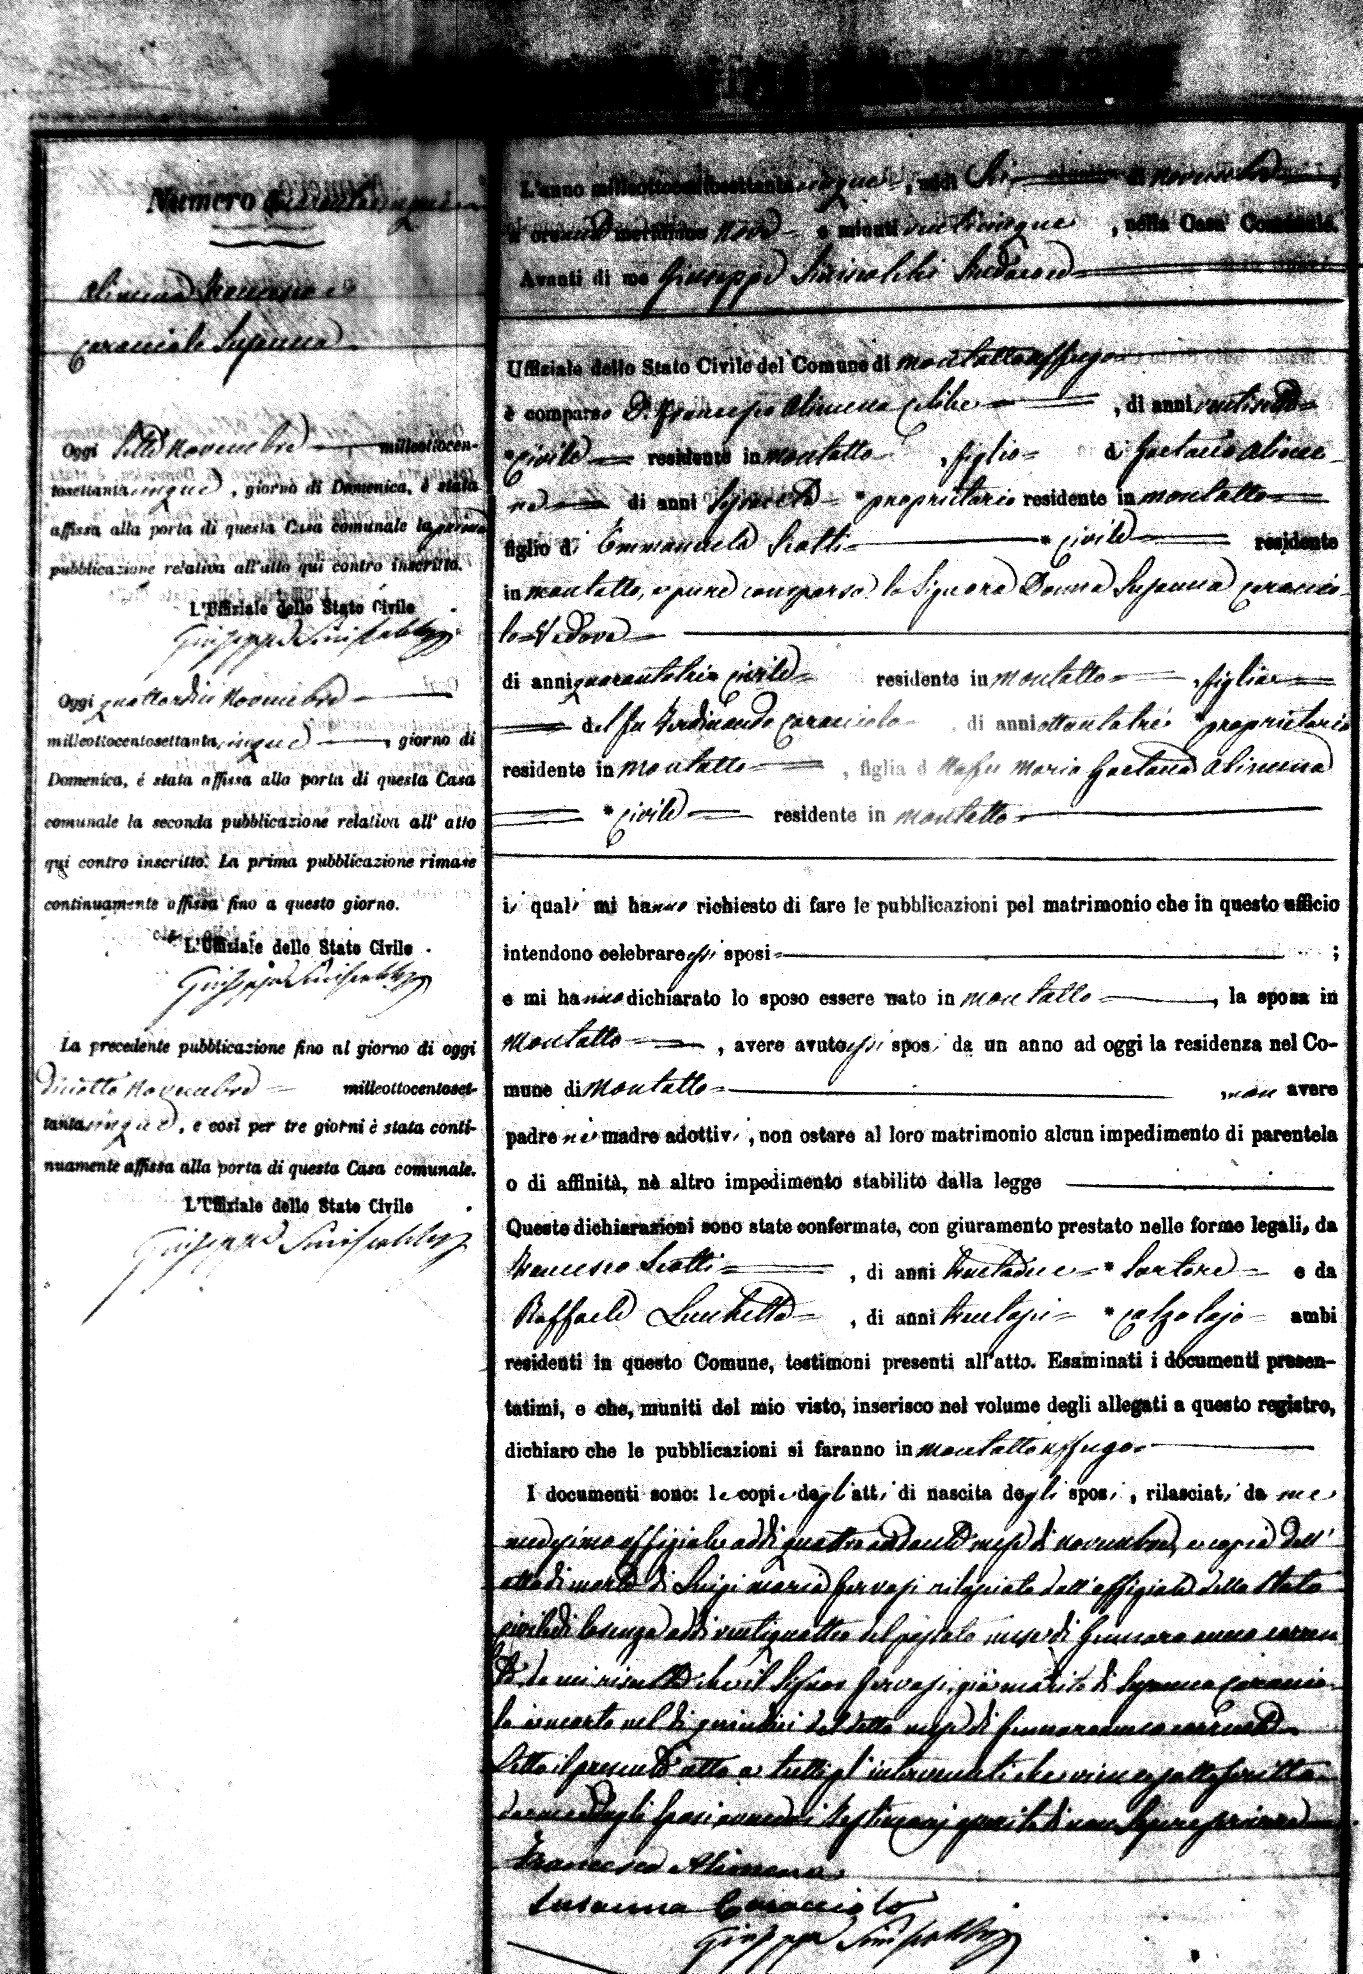 Numero quarantacinque
Alimena Francesco e
Caracciolo Susanna
Oggi sette Novembre millottocen-
tosettantacinque, giorno di Domenica, é stata
affissa alla porta di questa Casa comunale la prima
pubblicazione relativa all'atto qui contro inscritto.
L'Uffiziale dello Stato Civile
Giuseppe Siniscalchi
Oggi quattordici Novembre
milleottocentosettantacinque, giorno di
Domenica, é stata affissa alla porta di questa Casa
comunale la seconda pubblicazione relativa all' atto
qui contro inscritto. La prima pubblicazione rimase
continuamente affissa fino a questo giorno.
L'Uffiziale dello Stato Civile
Giuseppe Siniscalchi
La precedente pubblicazione fino al giorno di oggi
diciotto Novembre milleottocentoset-
tantacinque, e così per tre giorni è stata conti-
nuamente affissa alla porta di questa Casa comunale.
L'Uffiziale dello Stato Civile
Giuseppe Siniscalchi
L'anno milleottocentosettantacinque, addì Sei di Novembre,
a ore meridiane nove e minuti venticinque, nella Casa Comunale.
Avanti di me Giuseppe Siniscalchi Sindaco
Uffiziale dello Stato Civile del Comune di Montalto Uffugo
è comparso D. Francesco Alimena celibe, di anni
* civile residente in Montalto, figlio di Gaetano Alime-
na di anni sessanta * proprietario residente in Montalto
figlio di Emmanuela Scotti * civile residente
in Montalto, e pure comparsa la Signora Donna Susanna Caraccio-
lo Vedova
di anni quarantatre civile residente in Montalto, figlia
del fu Ferdinando Caracciolo, di anni ottantatré * proprietario
residente in Montalto, figlia d Maria Gaetana Alimena
* civile residente in Montalto
i quali mi hanno richiesto di fare le pubblicazioni pel matrimonio che in questo ufficio
intendono celebrare essi sposi ;
e mi hanno dichiarato lo sposo essere nato in Montalto, la sposa in
Montalto, avere avuto essi sposi da un anno ad oggi la residenza nel Co-
mune di Montalto, non avere
padre nè madre adottivi, non ostare al loro matrimonio alcun impedimento di parentela
o di affinità, nè altro impedimento stabilito dalla legge
Queste dichiarazioni sono state confermate, con giuramento prestato nelle forme legali, da
Francesco Scotti, di anni trentadue * Sartore e da
Raffaele Luchetta, di anni trentasei * calzolajo ambi
residenti in questo Comune, testimoni presenti all'atto. Esaminati i documenti presen-
tatimi, e che, muniti del mio visto, inserisco nel volume degli allegati a questo registro,
dichiaro che le pubblicazioni si faranno in Montalto Uffugo
I documenti sono: le copie degli atti di nascita degli sposi, rilasciati da me
medesimo uffiziale addì quattro andante mese di Novembre, e copia dell'
atto di morte di Luigi Maria Gervasi rilasciato dall'uffiziale dello stato
civile di Cosenza addì ventiquattro del passato mese di Gennaro anno corren
te da cui risulta che il Signor Gervasi, già marito di Susanna Caraccio-
lo è morto nel dì quindici del detto mese di Gennaro anno corrente
Letto il presente atto a tutti gl'intervenuti che viene sottoscritto
da me e dagli sposi avendo i testimonj asserito di non sapere scrivere
Francesco Alimena
Susanna Caracciolo
Giuseppe Siniscalchi